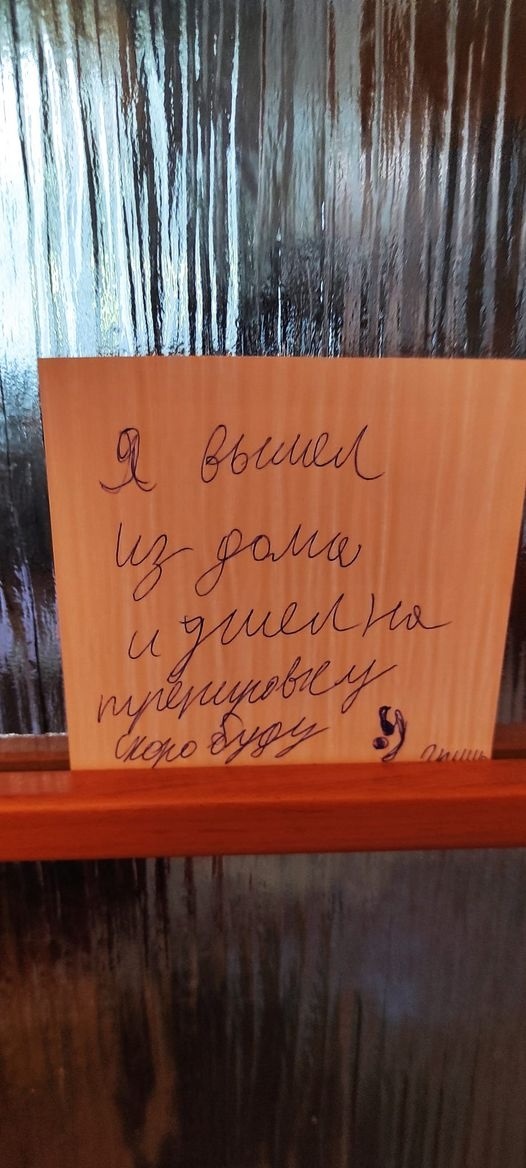 Я вышел
из дома
и ушел на
тренировку
скоро буду ;)